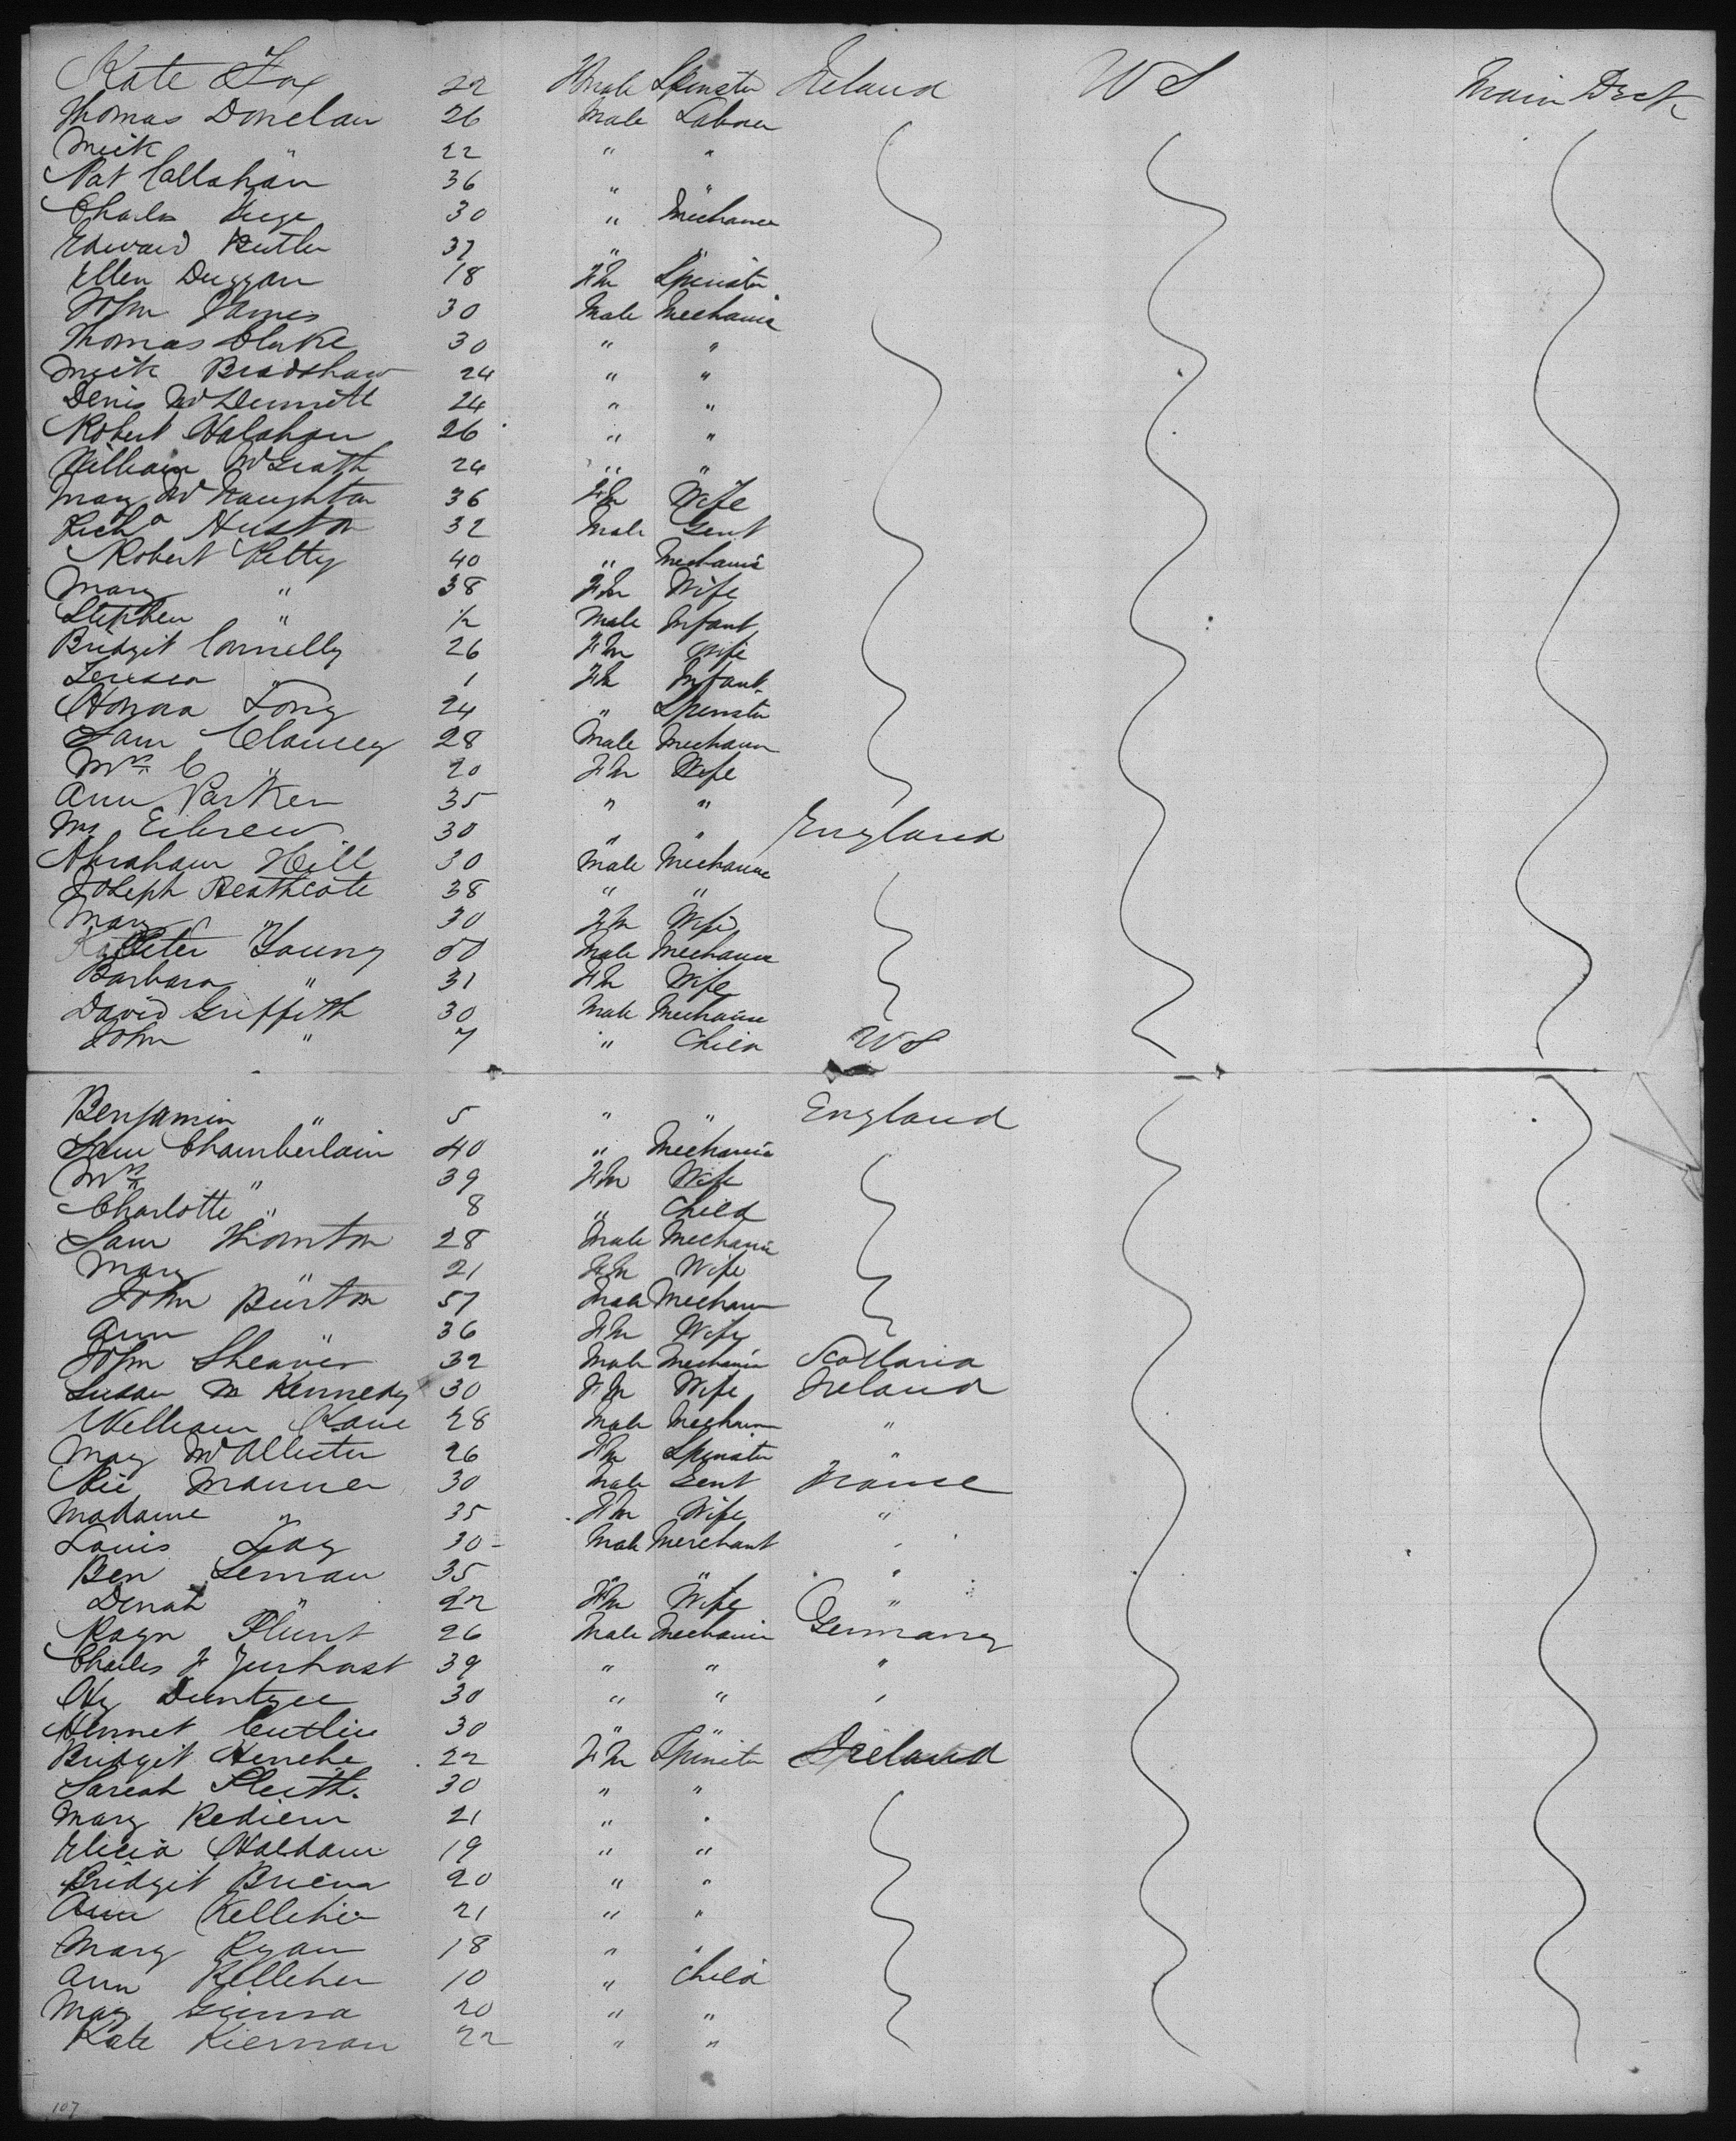 Kate Fox 22 Female Spinster Ireland W S Main Deck
Thomas Donelan 26 Male Labour
Mick " 22 " "
Pat Callahan 36 " "
Charles 30 " Mechanic
Edward Butler 37 " "
Ellen Duggan 18 Fm Spinster
John James 30 Male Mechanic
Thomas Blake 30 " "
Mick Bradshaw 24 " "
Denis 24 " "
Robert Halahan 26 " "
William McGrath 24 " "
Mary McNaughton 36 Fm Wife
Richd Huston 32 Male Gent
Robert Petty 40 " Mechanic
Mary " 38 Fm Wife
Stephen " 1/2 Male Infant
Bridgit Connelly 26 Fm Wife
Teresa " 1 Fm Infant
Honora Long 24 " Spinster
Sam Clancey 28 Male Mechanic
Mrs C " 20 Fm Wife
Ann Parker 35 " "
Mrs 30 " " England
Abraham Hill 30 Male Mechanic
Joseph Heathcote 38 " "
Mary " 30 Fm Wife
Peter Young 50 Male Mechanic
Barbara " 31 Fm Wife
David Griffith 30 Male Mechanic
John " 7 " Child W S
Benjamin " 5 " " England
Sam Chamberlain 40 " Mechanic
Mrs " 39 Fm Wife
Charlotte " 8 " Child
Sam Thornton 28 Male Mechanic
Mary " 21 Fm Wife
John Burton 57 Male Mechanic
Ann " 36 Fm Wife
John Shearer 32 Male Mechanic Scotland
Susan M Kennedy 30 Fm Wife Ireland
William Kane 28 Male Mechanic "
Mary McAllister 26 Fm Spinster "
30 Male Gent France
Madame " 35 Fm Wife "
Louis 30 Male Merchant "
Ben Leman 35 " " "
Dinah " 22 Fm Wife "
26 Male Mechanic Germany
Charles F 39 " " "
Hy 30 " " "
30 " "
Bridgit 22 Fm Spinster Ireland
Sarah 30 " "
Mary 21 " "
Elicia Haldam 19 " "
Bridgit 20 " "
Ann Kelleher 21 " "
Mary Ryan 18 " "
Ann Kelleher 10 " Child
May 20 " "
Kate Kiernan 22 " "
107